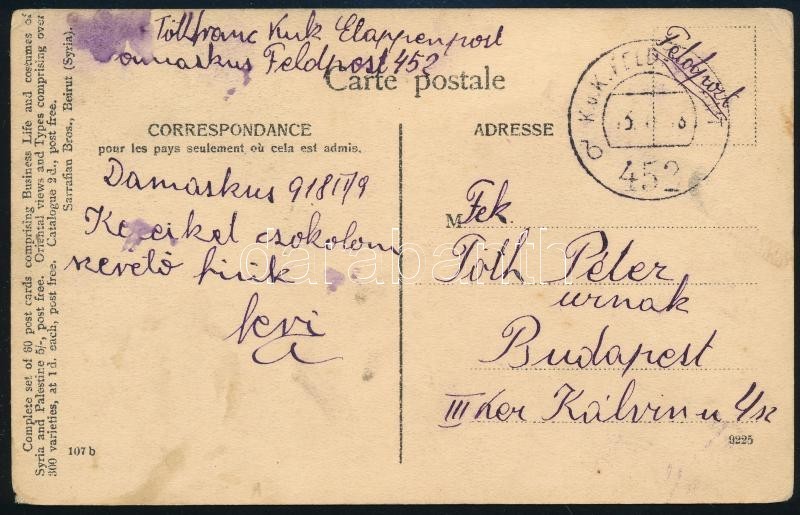 Tóth Ferenc Kuk Etappenpost
Damaskus Feldpost 452
Carte postale
Feldpost
K.u.K. FELD
452
CORRESPONDANCE
pour les pays seulement où cela est admis.
ADRESSE
Damaskus 918 II/9
Kezeiket csokolom
szerető fiuk
M Fek.
Tóth Péter
urnak
Budapest
III ker Kálvin u 4 sz
107 b
9225
Complete set of 60 post cards comprising Business Life and costumes of
Syria and Palestine 5/-, post free. Oriental views and Types comprising over
300 varieties, at 1d. each, post free. Catalogue 2d., post free.
Sarrafian Bros., Beirut (Syria).
darabanth